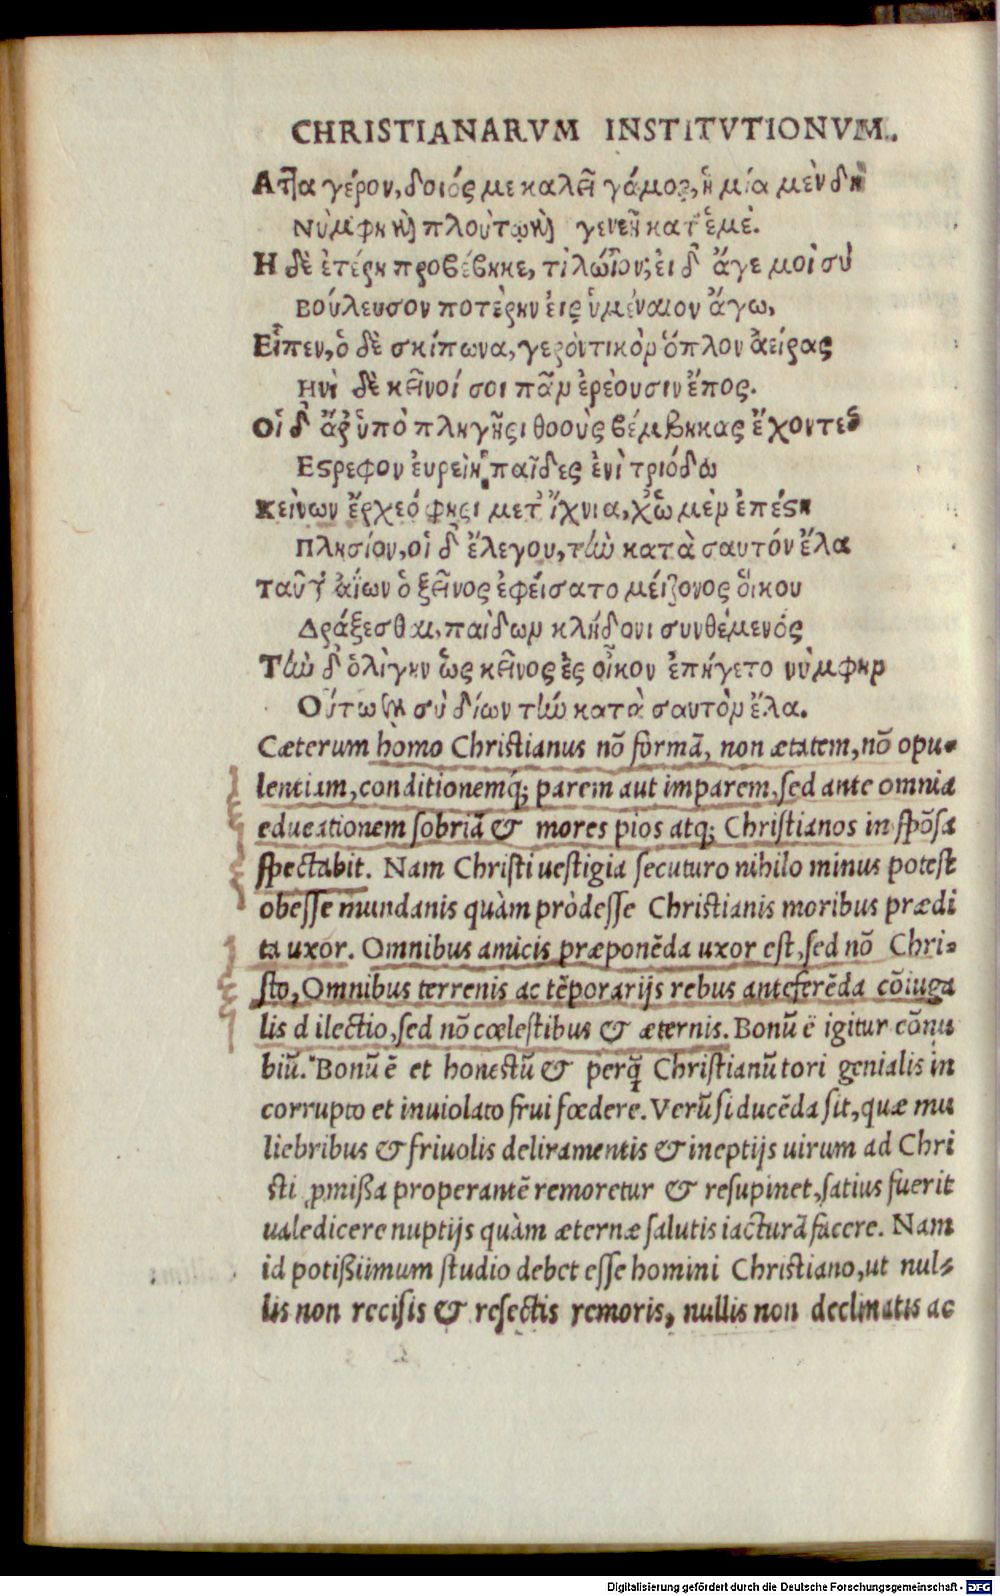 CHRISTIANARVM INSTITVTIONVM.
Ἄττα γέρον, δοιός με καλεῖ γάμος, ἡ μία μὲν δὴ
Νύμφη καὶ πλούτῳ καὶ γενεῇ κατ' ἐμέ.
Η δὲ ἑτέρη προβέβηκε, τί λώϊον; εἰ δ' ἄγε μοὶ σὺ
Βούλευσον ποτέρην εἰς ὑμέναιον ἄγω,
Εἶπεν, ὁ δὲ σκίπωνα, γεροντικὸν ὅπλον ἀείρας
Ηνὶ δὲ κεῖνοί σοι πᾶν ἐρέουσιν ἔπος.
Οἱ δ' ἄρ' ὑπὸ πληγῇσι θοοὺς βέμβηκας ἔχοντες
Εϛρεφον εὐρείῃ παῖδες ἐνὶ τριόδῳ
κείνων ἔρχεό φησι μετ' ἴχνια, χὦ μὲν ἐπέϛη
Πλησίον, οἱ δ' ἔλεγον, τὴν κατὰ σαυτόν ἔλα
Ταῦτ' ἀΐων ὁ ξεῖνος ἐφείσατο μείζονος οἴκου
Δράξεσθαι, παίδων κληδόνι συνθέμενός
Τὴν δ' ὀλίγην ὡς κεῖνος ἐς οἶκον ἐπήγετο νύμφην
Οὕτω καὶ σὺ δ' ἰὼν τὴν κατὰ σαυτὸν ἔλα.
Cæterum homo Christianus nō formā, non ætatem, nō opu-
lentiam, conditionemq́; parem aut imparem, sed ante omnia
educationem sobriā & mores pios atq; Christianos in spōsa
spectabit. Nam Christi uestigia secuturo nihilo minus potest
obesse mundanis quàm pròdesse Christianis moribus prædi
ta uxor. Omnibus amicis præponēda uxor est, sed nō Chri-
sto, Omnibus terrenis ac tēporarijs rebus anteferēda cōiuga
lis dilectio, sed nō cœlestibus & æternis. Bonū ē igitur cōnu
biū. Bonū ē et honestū & perq̄ Christianū tori genialis in
corrupto et inuiolato frui fœdere. Verū si ducēda sit, quæ mu
liebribus & friuolis deliramentis & ineptijs uirum ad Chri
sti ꝓmißa properantē remoretur & resupinet, satius fuerit
ualedicere nuptijs quàm æternæ salutis iacturā facere. Nam
id potißiimum studio debet esse homini Christiano, ut nul-
lis non recisis & resectis remoris, nullis non declinatis ac
Digitalisierung gefördert durch die Deutsche Forschungsgemeinschaft - DFG